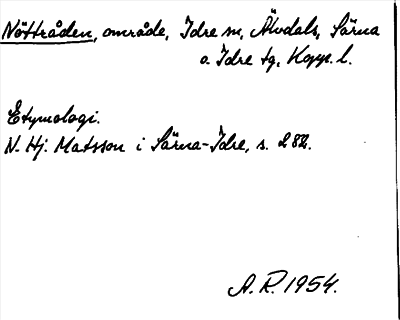 Nöttråden, område, Idre sn, Älvdals, Särna
o. Idre tg, Kopp. l.
Etymologi.
N. Hj. Matsson i Särna-Idre, s. 282.
A.R. 1954.